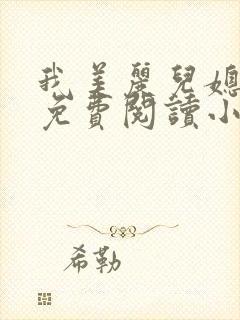 我美麗兒媳
免費閱讀小
希勒